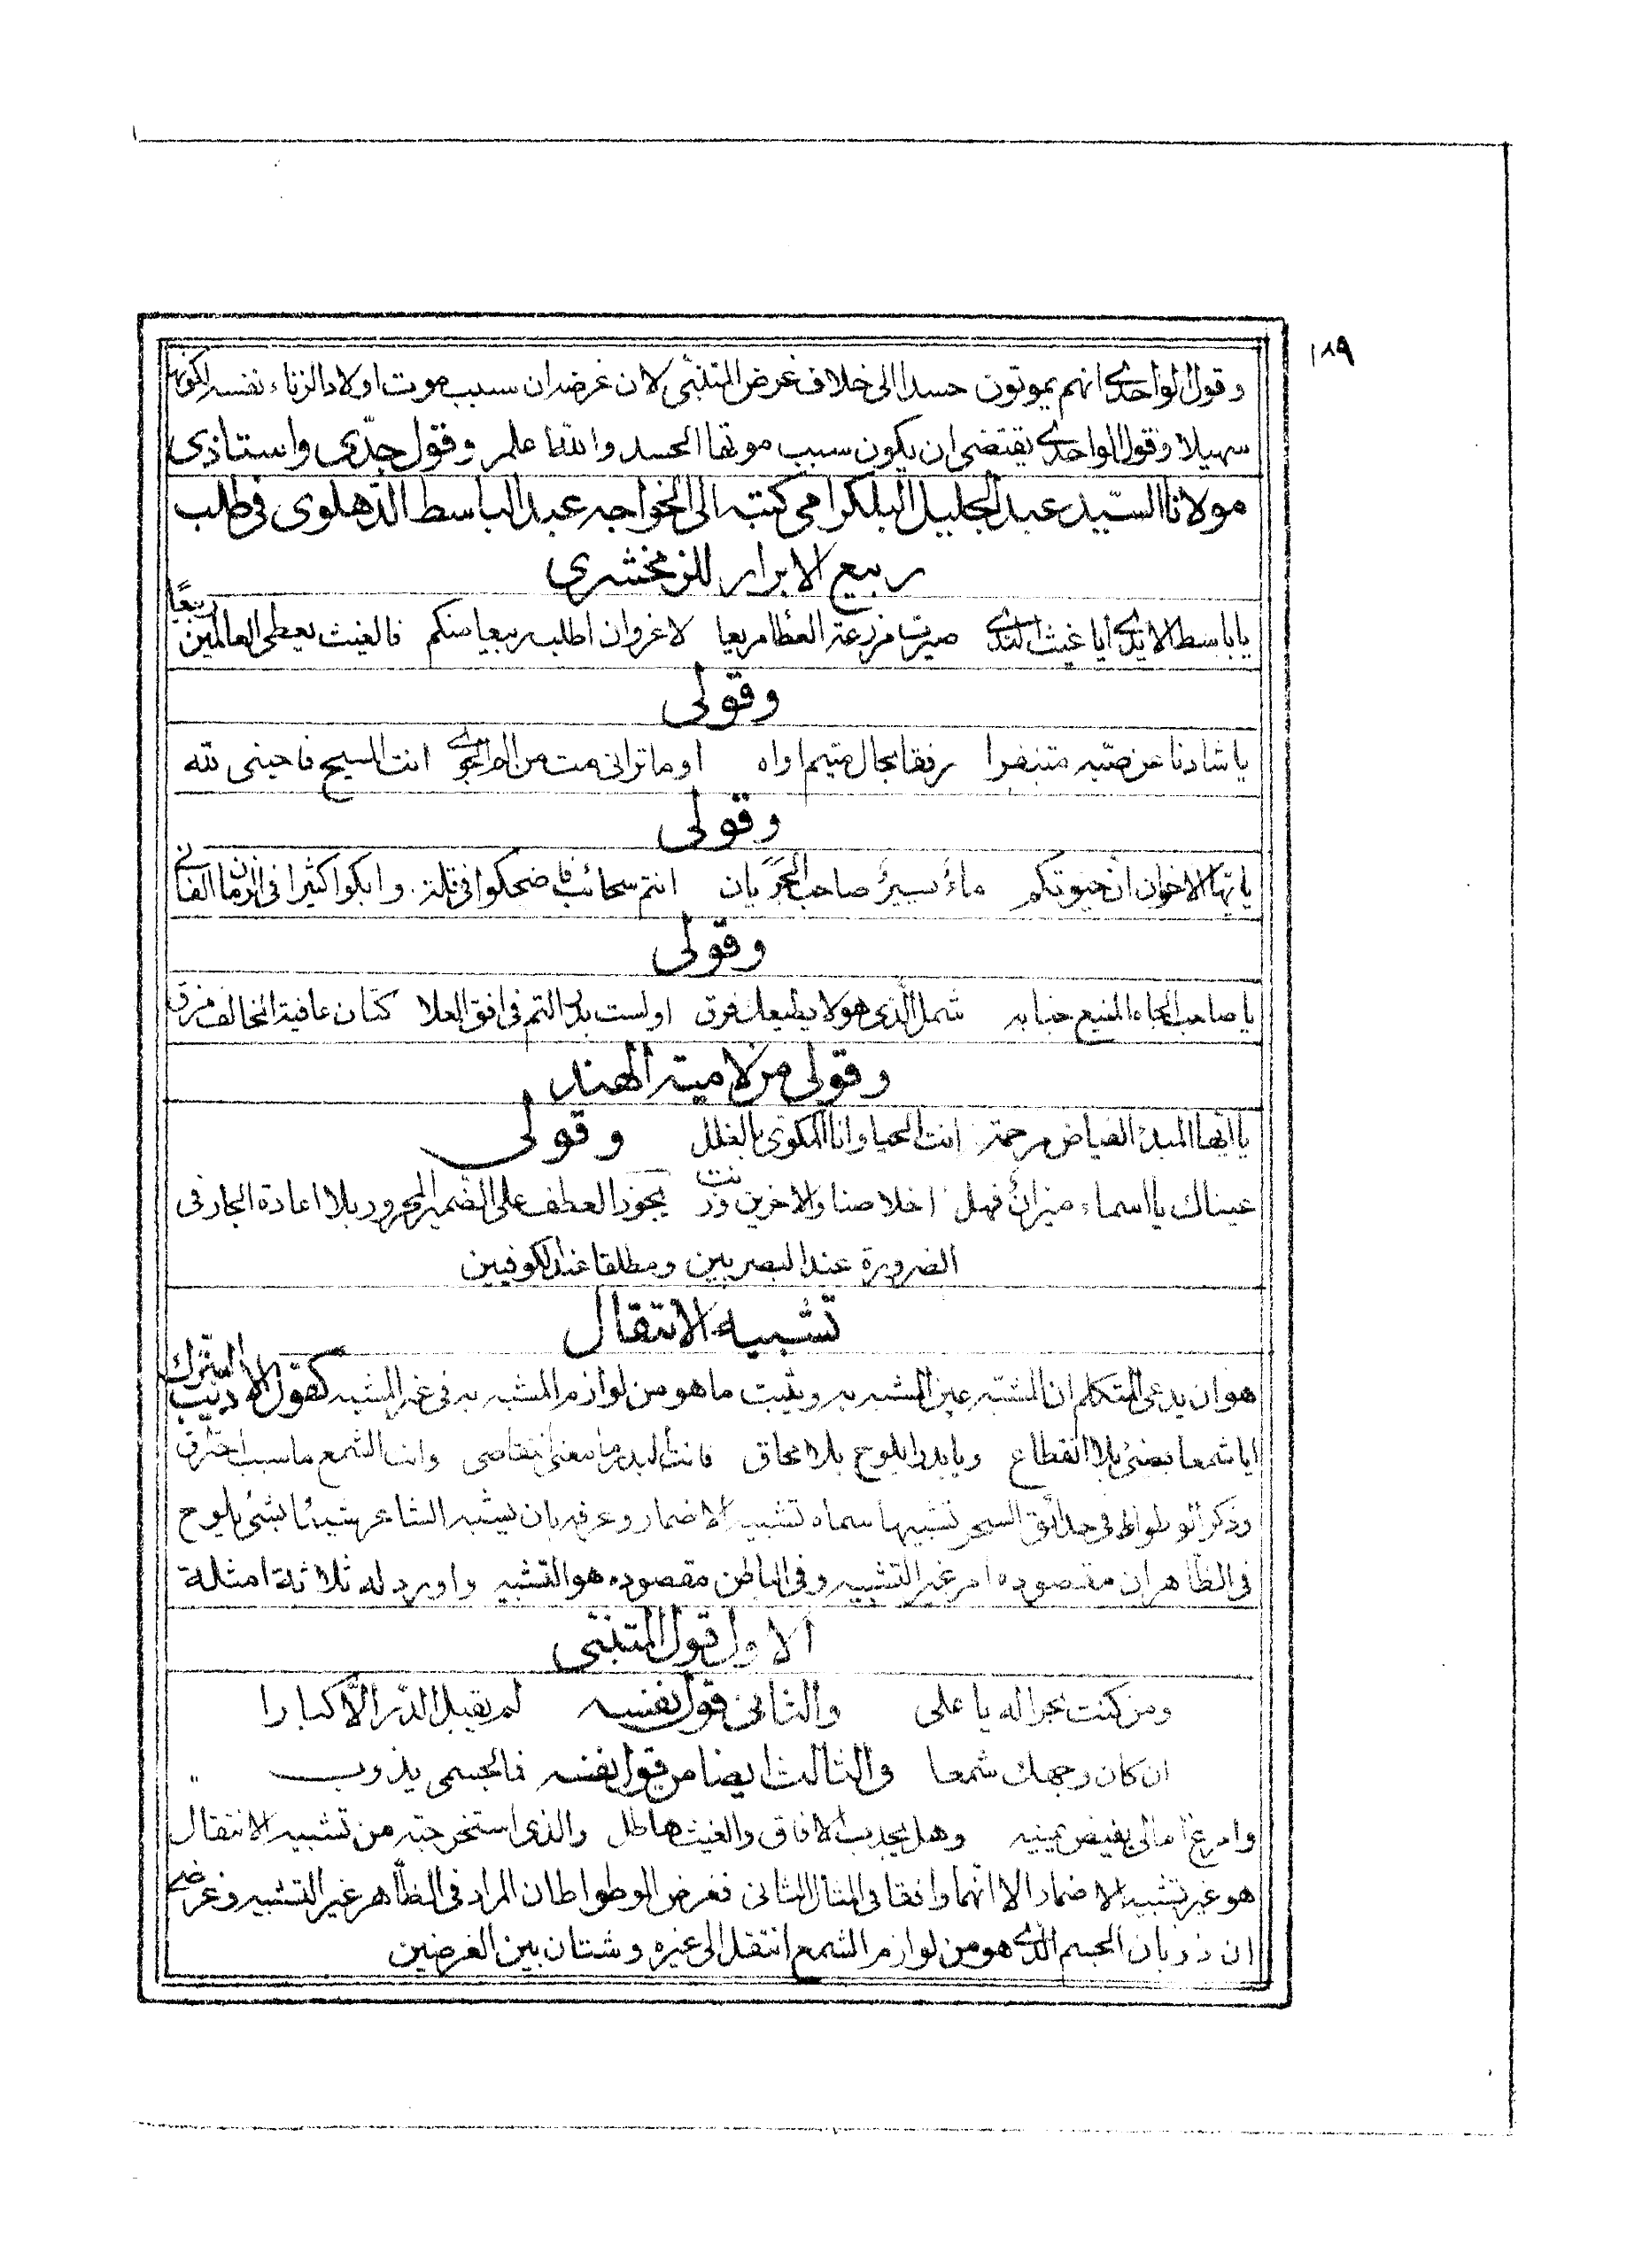 ١٨٩
وقول الواحدي انهم يموتون حسدا الى خلاف غرض المتنبى لان غرضه ان سبب موت اولاد الزناء نفسه لكونه
سهيلا وقول الواحدي يقتضى ان يكون سبب موتها الحسد والله اعلم وقول جدّى واستاذى
مولانا السّيد عبد الجليل البلكرامى كتبه الى الخواجه عبد الباسط الدّهلوى فى طلب
ربيع الابرار للزمخشرى
ياباسط الايدي ايا غيث الندي صيرت مزرعة العطا مريعا لاغروان اطلب ربيعا منكم فالغيث يعطى العالمين ربيعًا
وقولى
ياشادنا عن صبّه متنفرا رفقا بحال متيم اواه اوماترانى مت من الم انت المسيح فاحينى لله
وقولى
يايّها الاخوان انّ حيوتكم ماءٌ يسيرٌ صاحب الجَرَيان انتم سحائب فاضحكوا فى قلة وابكوا كثيرا فى الزمان الفانى
وقولى
ياصاحب الجاه المنيع جنابه شمل الّذى هو لا يطيعك فرق اولست بدر التم فى افق العلا كتان عافية المخالف مزق
وقولى من لامية الهند
ياايها المبدء الفياض مرحمة انت الحيا وانا المكوى بالغلل وقولى
عيناك يااسماء ميزانٌ فهل اخلاصنا والاخرين وزنت يجوز العطف على الضمير المجرور بلا اعادة الجار فى
الضرورة عند البصريين ومطلقا عند الكوفيين
تشبيه الانتقال
هو ان يدعى المتكلم ان المشبّه عين المشبه به ويثبت ما هو من لوازم المشبه به فى غير المشبه كقول الاديب المترك
اياشمعا يضئ بلا انقطاع ويابدرا يلوح بلا محاق فانت البدر ما معنى انتقاصى وانت الشمع ما سبب احتراقى
وذكر الوطواط فى حدائق السحر تشبيها سماه تشبيه الاضمار وعرفه بان يشبه الشاعر شيئا بشئ يلوح
فى الظّاهر ان مقصوده امر غير التشبيه وفى الباطن مقصوده هو التشبيه واورد له ثلاثة امثلة
الاول قول المتنبى
ومن كنت بحرا له يا على والثانى قول نفسه لم يقبل الدّر الّا كبارا
ان كان وجهك شمعا والثالث ايضا من قول نفسه فالجسمى يذوب
وامرع امالى بفيض يمينه وهل يجدب الافاق والغيث هاطل والذى استخرجته من تشبيه الانتقال
هو غير تشبيه الاضمار الا انهما وافقا فى المثال الثانى فغرض الوطواط ان المراد فى الظّاهر غير التشبيه وغرضى
ان ذوبان الجسم الّذي هو من لوازم الشمع انتقل الى غيره وشتان بين الغرضين